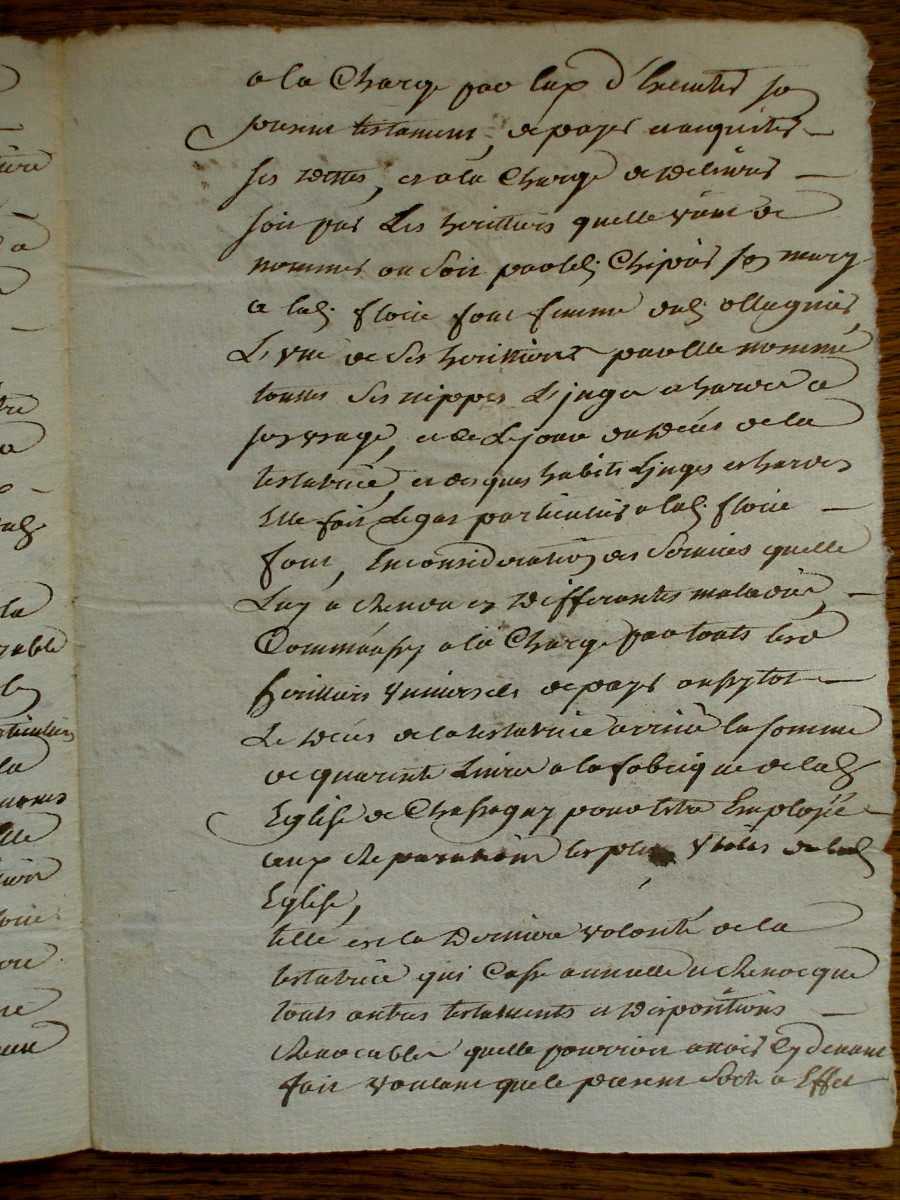 a la Charge par Eux d'Executer son
present testament, de payer et acquiter
ses dettes, et a la Charge de delivrer
soit par Les heritiers quelle vient de
nommer ou soit par led. son mary
a lad. florie font femme dud. ollagnier,
L'une de ses heritieres par elle nommé
touttes ses nippes Linges et hardes a
son usage, et de Le jour du deces de la
testatrice, et desques habits Linges et hardes
Elle fait Legat particulier a lad. florie
font, En consideration des Services quelle
Luy a Rendu en differentes maladies,
Comm'aussy a la Charge par touts lesd
heritiers Universels de payer aussytot
Le deces de la testatrice arrivé la somme
de quarente Livres a la fabrique de lad
Eglise de Chassagny pour Estre Employée
aux Reparations les plus Utiles de lad
Eglise,
telle est la derniere volonté de la
testatrice qui Casse annulle et Revocque
touts autres testaments et dispositions
Revocables quelle pourroit avoir Cy devant
fait voulant que le present Sorte a Effet